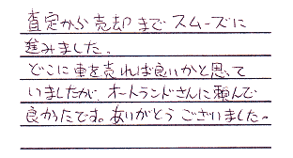 査定から売却までスムーズに
進みました。
どこに車を売れば良いかと思って
いましたが、オートランドさんに頼んで
良かったです。ありがとうございました。